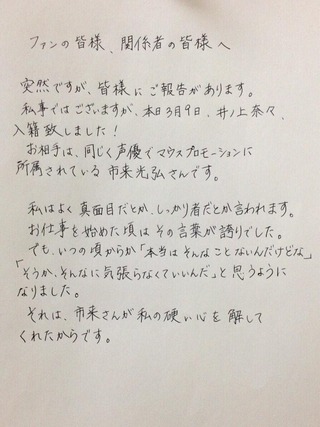 ファンの皆様、関係者の皆様へ
突然ですが、皆様にご報告があります。
私事ではございますが、本日3月9日、井ノ上奈々、
入籍致しました！
お相手は、同じく声優でマウスプロモーションに
所属されている市来光弘さんです。
私はよく真面目だとか、しっかり者だとか言われます。
お仕事を始めた頃はその言葉が誇りでした。
でも、いつの頃からか「本当はそんなことないんだけどな」
「そうか、そんなに気張らなくていいんだ」と思うように
なりました。
それは、市来さんが私の硬い心を解して
くれたからです。